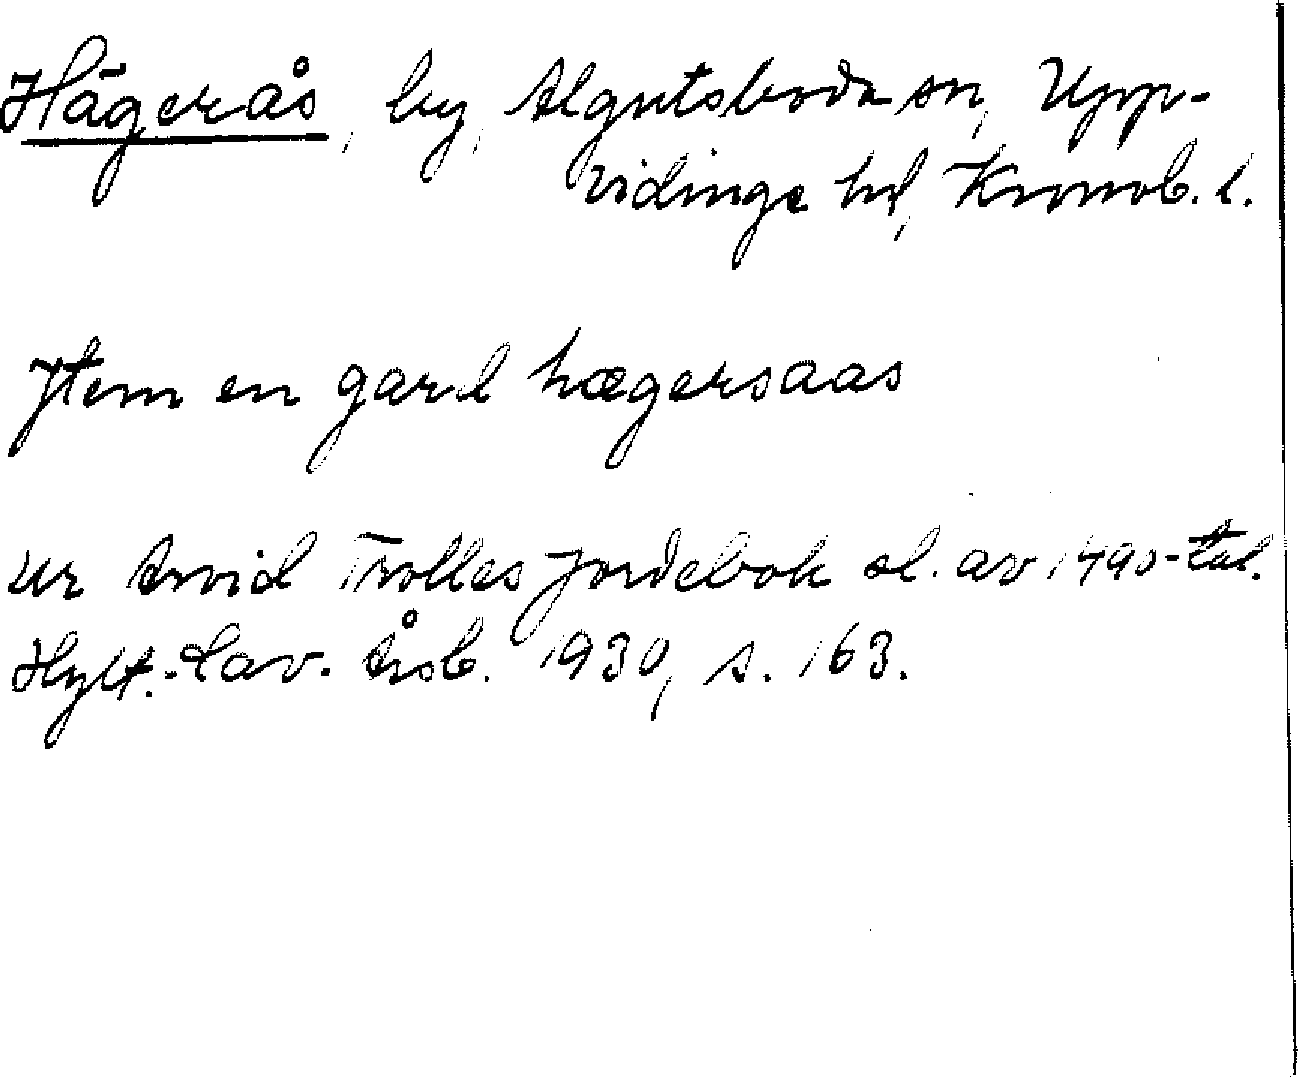 Hägerås, by, Algutsboda sn, Upp-
vidinge hd, Kronob. l.
Jtem en gard hægersaas
ur Arvid Trolles jordebok sl. av 1490-tal.
Hylt.-Cav. Årsb. 1930, s. 163.